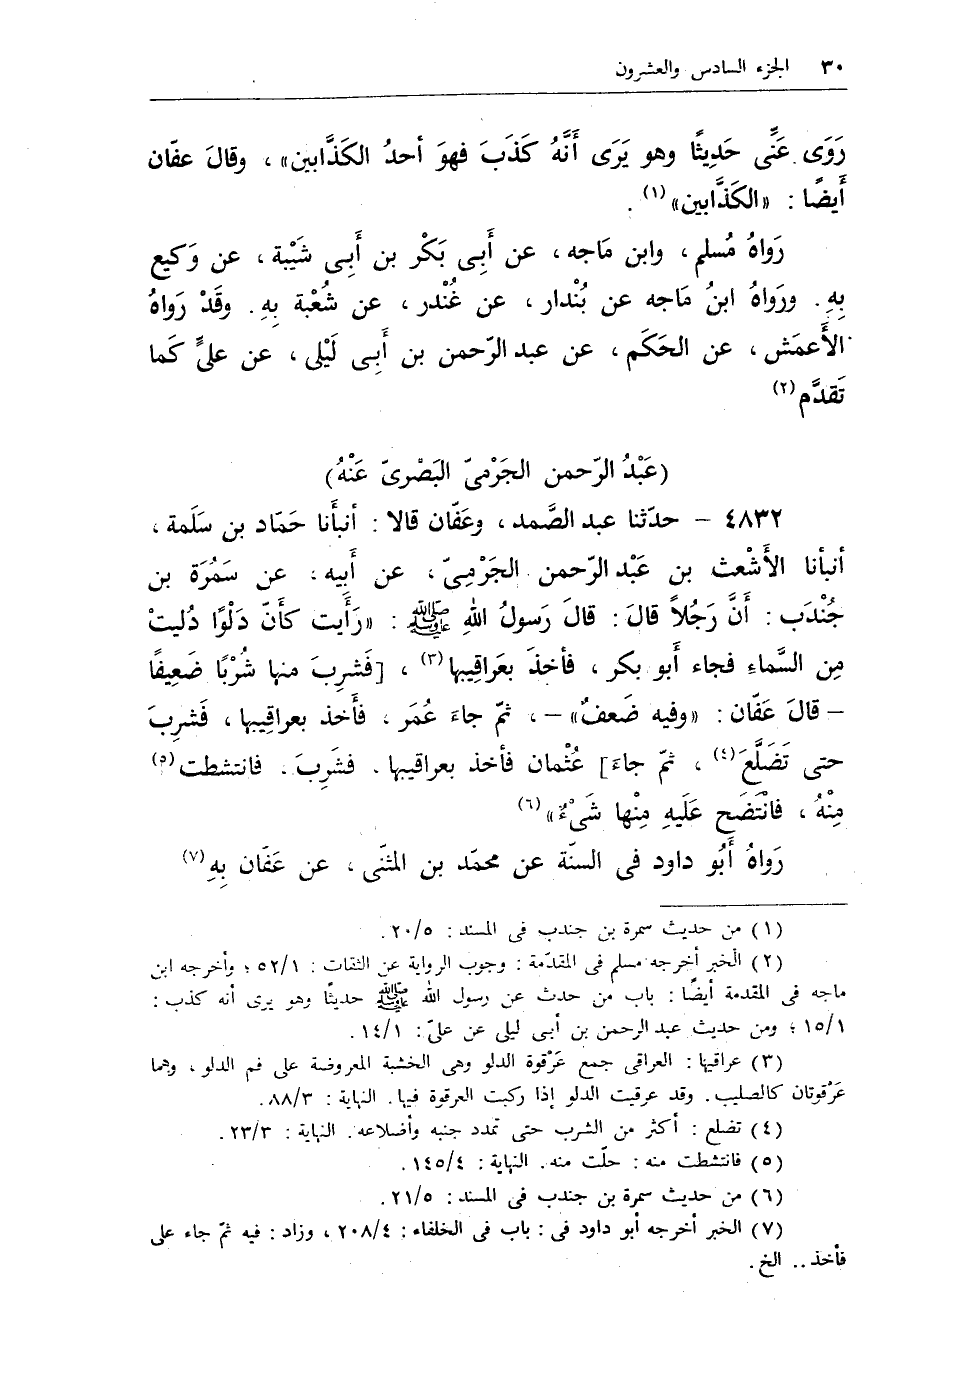 ٣٠ الجزء السادس والعشرون
رَوَى عَنِّى حَدِيثًا وهو يَرَى أَنَّهُ كَذَبَ فهوَ أحدُ الكَذَّابين» ، وقالَ عفّان
أَيضًا : «الكَذَّابين»(١) .
رَواهُ مُسلم ، وابن مَاجه ، عن أَبِى بَكْر بن أَبِى شَيْبة ، عن وَكيع
بِهِ . ورَواهُ ابنُ مَاجه عن بُنْدار ، عن غُنْدر ، عن شُعْبة بِهِ . وقَدْ رَواهُ
الأَعمَش ، عن الحَكَم ، عن عبد الرّحمن بن أَبِى لَيْلى ، عن علىٍّ كَما
تَقدَّم(٢)
(عَبْدُ الرّحمن الجَرْمىّ البَصْرىّ عَنْهُ)
٤٨٣٢ – حدّثنا عبد الصَّمد ، وعَفّان قالا : أنبأَنا حَمّاد بن سَلَمة ،
أنبأنا الأَشْعث بن عَبْد الرّحمن الجَرْمِىّ ، عن أَبيه ، عن سَمُرَة بن
جُنْدَب : أَنَّ رَجُلاً قالَ : قالَ رَسولُ اللهِ ﷺ : «رَأَيت كأَنّ دَلْوًا دُليتْ
مِن السَّماءِ فجاء أَبو بكر ، فأخذَ بعَراقِيبها(٣) ، [فَشرِبَ منها شُرْبًا ضَعِيفًا
– قالَ عَفّان : «وفيه ضَعفٌ» – ، ثمّ جاءَ عُمَر ، فأَخذ بعراقِيبها ، فَشرِبَ
حتى تَضَلَّعَ(٤) ، ثمّ جاءَ] عُثْمان فأخذ بعراقيبها . فشَرِبَ . فانتشطت(٥)
مِنْهُ ، فانْتَضَح عَلَيهِ مِنْها شَىْءٌ»(٦)
رَواهُ أَبُو داود فى السنّة عن محمّد بن المثنّى ، عن عَفَان بِهِ(٧)
(١) من حديث سمرة بن جندب فى المسند : ٢٠/٥ .
(٢) الخبر أخرجه مسلم فى المقدّمة : وجوب الرواية عن الثقات : ٥٢/١ ؛ وأخرجه ابن
ماجه فى المقدمة أيضًا : باب من حدث عن رسول الله ﷺ حديثًا وهو يرى أنه كذب :
١٥/١ ؛ ومن حديث عبد الرحمن بن أبى ليلى عن علىّ : ١٤/١ .
(٣) عراقيها : العراقى جمع عَرْقوة الدلو وهى الخشبة المعروضة على فم الدلو ، وهما
عَرْقوتان كالصليب . وقد عرقيت الدلو إذا ركبت العرقوة فيها . النهاية : ٨٨/٣ .
(٤) تضلع : أكثر من الشرب حتى تمدد جنبه وأضلاعه . النهاية : ٢٣/٣ .
(٥) فانتشطت منه : حلّت منه . النهاية : ١٤٥/٤ .
(٦) من حديث سمرة بن جندب فى المسند : ٢١/٥ .
(٧) الخبر أخرجه أبو داود فى : باب فى الخلفاء : ٢٠٨/٤ ، وزاد : فيه ثمّ جاء على
فأخذ .. الخ .